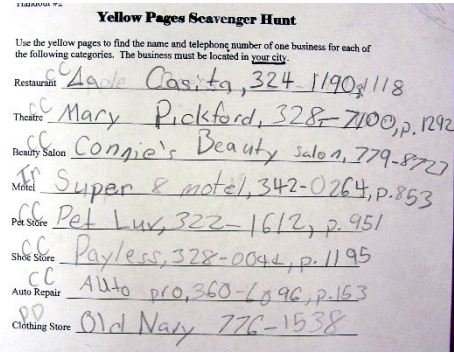 Handout #2
Yellow Pages Scavenger Hunt
Use the yellow pages to find the name and telephone number of one business for each of
the following categories. The business must be located in your city.
CC
Restaurant Casita, 324-1190, 1118
CC
Theatre Mary Pickford, 328-7100, p. 1292
CC
Beauty Salon Connie's Beauty salon, 779-8727
In
Motel Super 8 motel, 342-0264, p. 853
CC
Pet Store Pet Luv, 322-1612, p. 951
CC
Shoe Store Payless, 328-0044, p. 1195
CC
Auto Repair Auto pro, 360-6096, p. 153
PD
Clothing Store Old Navy 776-1538